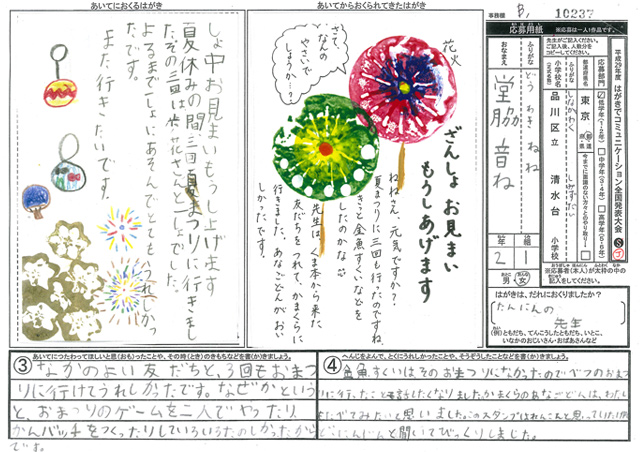 あいてにおくるはがき
しょ中お見まいもうし上げます
夏休みの間三回夏まつりに行きまし
よるまでいっしょにあそんでとてもうれしかっ
たです。
また、行きたいです。
あいてからおくられてきたはがき
さて、
なんの
やさいで
しょうか…?
花火
ざんしょ お見まい
もうしあげます
ねねさん、元気ですか?
夏まつりに三回も行ったのですね。
きっと金魚すくいなどを
したのかな
先生は、くま本から来た
友だちをつれて、かまくらに
行きました。あなごどんがおい
しかったです。
事務欄
B, 10237
応募用紙
※応募は一人1作品です。
平成29年度 はがきでコミュニケーション全国発表大会
応募部門
低学年(1・2年)
中学年(3・4年)
高学年(5・6年)
東京
しながわく
品川区立
しみずだい
清水台
小学校
ふりがな
どうわき ねね
おなまえ
堂脇 音ね
2年
1組
男・女
※応募者(本人)が太枠の中の
記入をしてください。
はがきは、だれにおくりましたか?
たんにんの
先生
(例)ともだち、てんこうしたともだち、いとこ、
いなかのおじいさん・おばあさんなど
あいてにつたわってほしいと思(おも)ったことや、その時(とき)のきもちなどを書(か)きましょう。
③ なかのよい友だちと、3回もおまつ
りに行けてうれしかったです。なぜかという
と、おまつりのゲームを二人でやったり、
かんバッチをつくったりしていろいろたのしかったから
です。
へんじをよんで、とくにうれしかったことや、そうぞうしたことなどを書(か)きましょう。
④ 金魚すくいはそのおまつりになかったのでべつのおまつ
りに行ったことも話したくなりました。かまくらのあなごどんは、わたしも
たべてみたいと思いました。このスタンプはれんこんと思っていたけれ
どにんじんと聞いてびっくりしました。